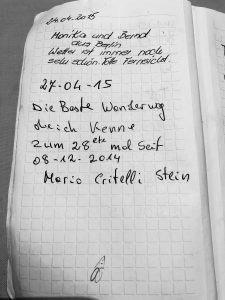 24.04.2015
Monika und Bernd
aus Berlin
Wetter ist immer noch
sehr schön. Tolle Fernsicht.
27-04-15
Die Beste Wanderweg
die ich Kenne
zum 28 ete mal Seit
08-12-2014
Mario Critelli Stein